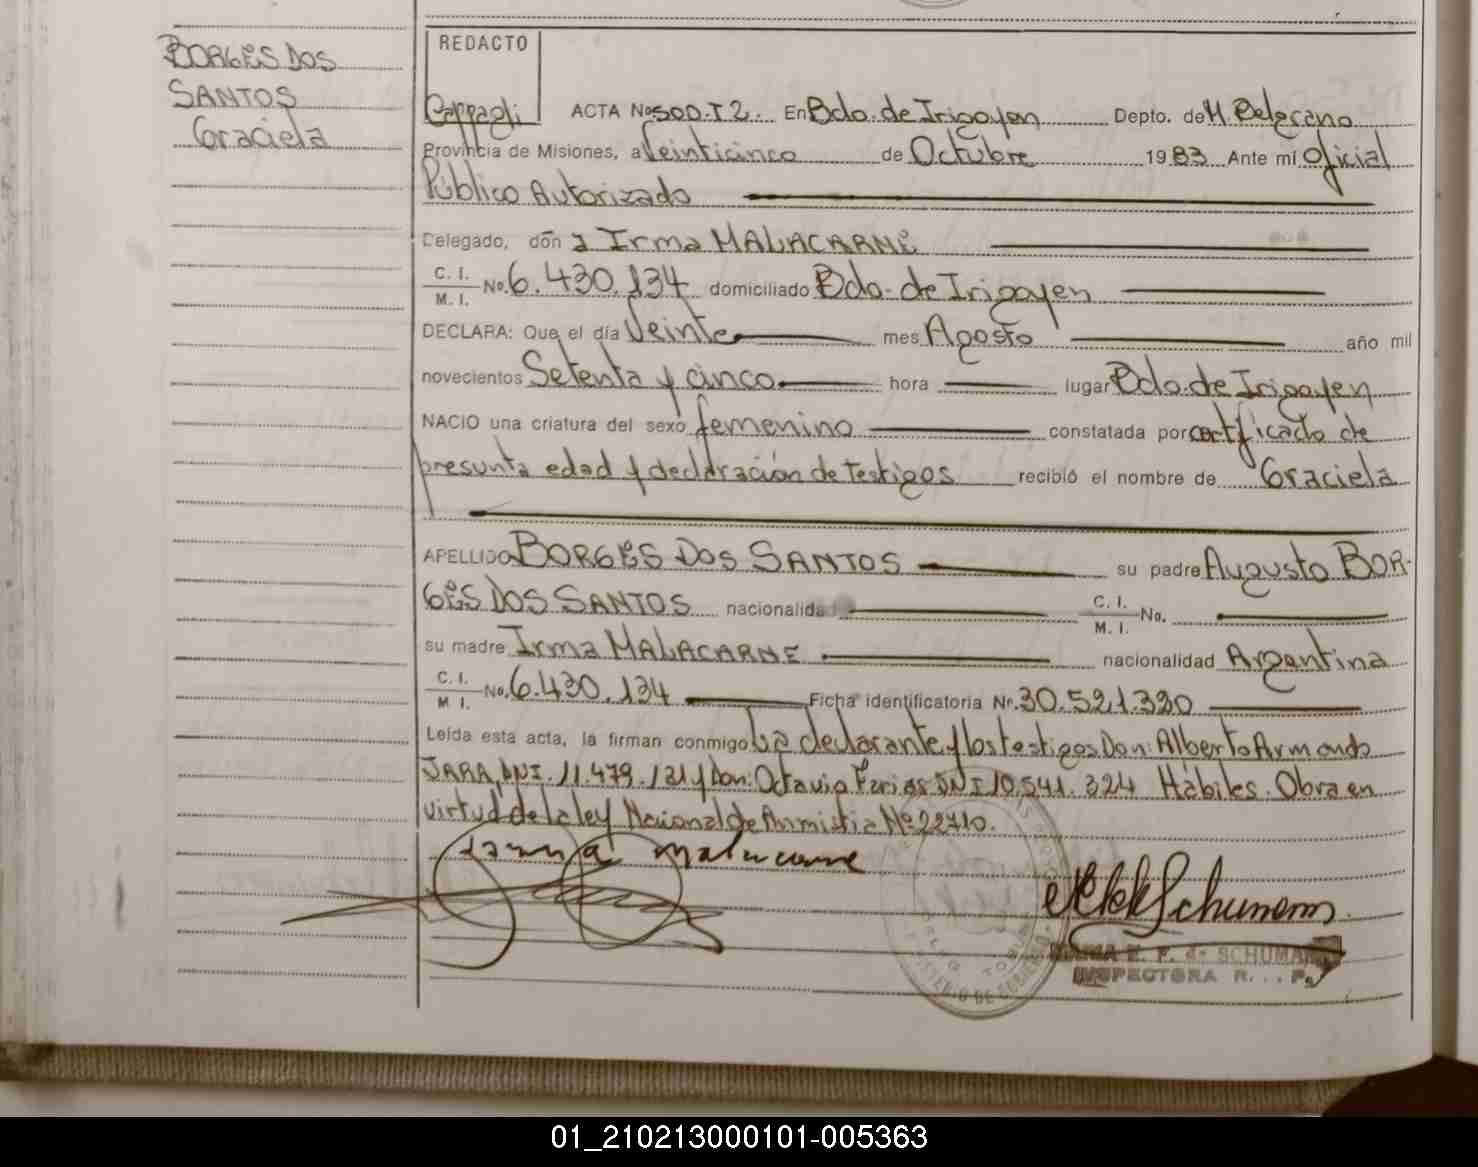 BORGES DOS
SANTOS
Graciela
REDACTO
Cappagli
ACTA No 500. T 2. En Bdo. de Irigoyen Depto. de M. Belgrano
Provincia de Misiones, a Veinticinco de Octubre 1983 Ante mí Oficial
Público Autorizado
Delegado, don a Irma MALACARNE
C. I.
M. I. No. 6.430.134 domiciliado Bdo. de Irigoyen
DECLARA: Que el día Veinte mes Agosto año mil
novecientos Setenta y cinco hora lugar Bdo. de Irigoyen
NACIO una criatura del sexo femenino constatada por certificado de
presunta edad y declaración de testigos recibió el nombre de Graciela
APELLIDO BORGES DOS SANTOS su padre Augusto BOR-
GES DOS SANTOS nacionalidad C. I.
M. I. No.
su madre Irma MALACARNE nacionalidad Argentina
C. I.
M I. No. 6.430.134 Ficha identificatoria Nr. 30.521.320
Leída esta acta, la firman conmigo La declarante y los testigos Don: Alberto Armando
JARA, DNI. 11.479.121 y Don: Octavio Farias DNI 10.541.324 Hábiles. Obra en
virtud de la ley Nacional de Amnistia Nº 22710.
Irma malacarne
Schumann
E. F. de SCHUMANN
INSPECTORA R. . . P.
01_210213000101-005363